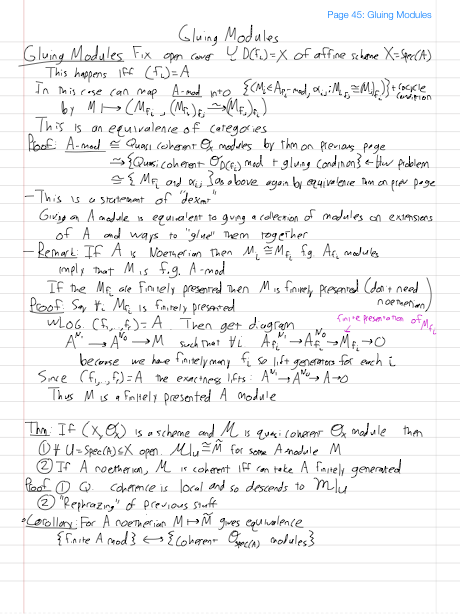 Page 45: Gluing Modules
Gluing Modules
Gluing Modules Fix open cover ∪ D(fᵢ) = X of affine scheme X=Spec(A)
This happens iff (fᵢ)=A
In this case can map A-mod into {(Mᵢ∈A_{fᵢ}-mod, αᵢⱼ: Mᵢ_{fⱼ} ≅ Mⱼ_{fᵢ})} + cocycle condition
by M ↦ (M_{fᵢ}, (M_{fᵢ})_{fⱼ} ≅ (M_{fⱼ})_{fᵢ})
This is an equivalence of categories
Proof: A-mod ≅ Quasi coherent Oₓ modules by thm on previous page
≅ {Quasi coherent O_{D(fᵢ)} mod + gluing condition} ← HW problem
≅ { M_{fᵢ} and αᵢⱼ } as above again by equivalence thm on prev page
– This is a statement of "descent"
Giving an A module is equivalent to giving a collection of modules on extensions
of A and ways to "glue" them together
– Remark: If A is Noetherian then Mᵢ ≅ M_{fᵢ} f.g. A_{fᵢ} modules
imply that M is f.g. A-mod
If the M_{fᵢ} are finitely presented then M is finitely presented (don't need noetherian)
Proof: Say ∀i M_{fᵢ} is finitely presented
WLOG (f₁,..,fᵣ)=A. Then get diagram
finite presentation of M_{fᵢ}
A^{N₁} → A^{N₀} → M such that ∀i A_{fᵢ}^{N₁} → A_{fᵢ}^{N₀} → M_{fᵢ} → 0
because we have finitely many fᵢ so lift generators for each i
Since (f₁,..,fᵣ)=A the exactness lifts: A^{N₁} → A^{N₀} → A → 0
Thus M is a finitely presented A module
Thm: If (X, Oₓ) is a scheme and M is quasi coherent Oₓ module then
① ∀ U=Spec(A)⊆X open. M|_U ≅ M̃ for some A-module M
② If A noetherian, M is coherent iff can take A finitely generated
Proof ① Q. coherence is local and so descends to M|_U
② "Rephrazing" of previous stuff
• Corollary: For A noetherian M ↦ M̃ gives equivalence
{finite A mod} ↔ {coherent O_{Spec(A)} modules}